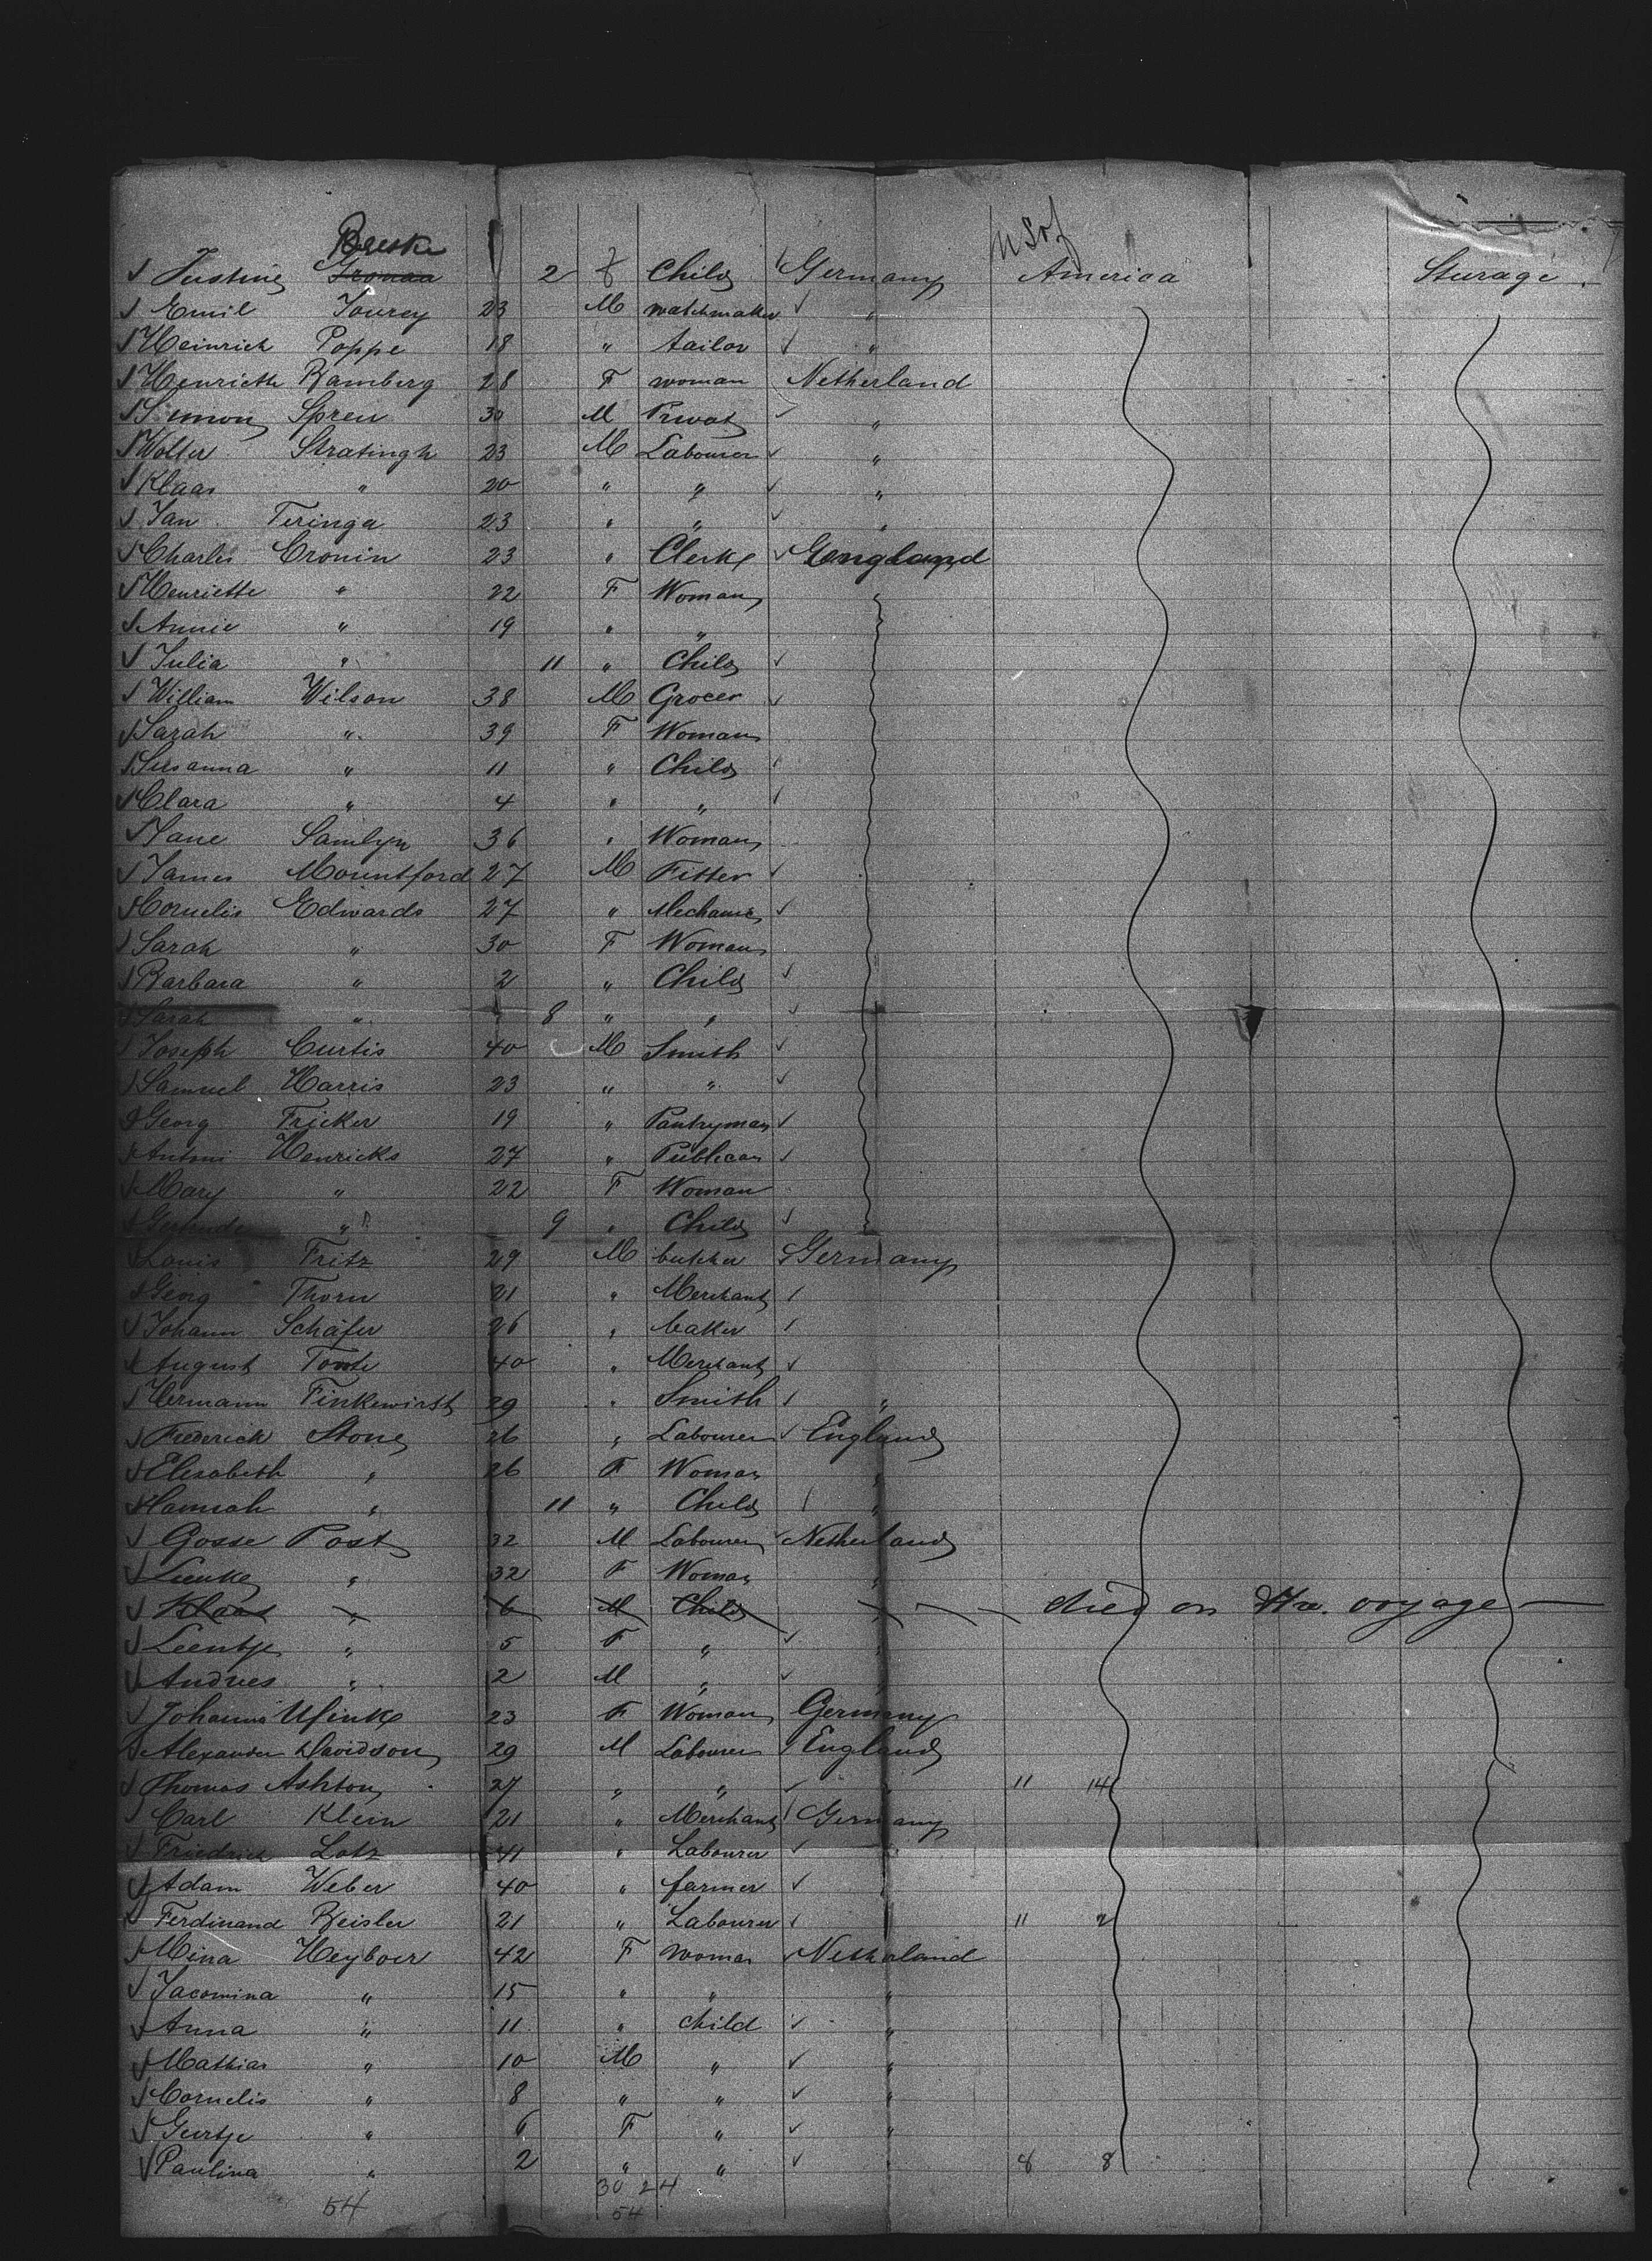 Reeske U S of
Justine Gronau 2 f Child Germany America Sturage
Emil Tourey 23 M watchmaker "
Heinrich Poppe 18 " tailor "
Henriette Bamberg 28 F woman Netherland
Simon Spreu 30 M Privat "
Wolter Stratingh 23 M Labourer "
Klaas " 20 " " "
Jan Teringa 23 " " "
Charles Cronin 23 " Clerk England
Henriette " 22 F Woman "
Annie " 19 " "
Julia " 11 " Child
William Wilson 38 M Grocer
Sarah " 39 F Woman
Susanna " 11 " Child
Clara " 4 " "
Jane Samlyn 36 " Woman
James Mountford 27 M Fitter
Cornelis Edwards 27 " Mechanic
Sarah " 30 F Woman
Barbara " 2 " Child
Sarah " 8 " "
Joseph Curtis 40 M Smith
Samuel Harris 23 " "
Georg Fricker 19 " Pantryman
Antoni Henricks 27 " Publican
Mary " 22 F Woman
Gertrude " 9 " Child
Louis Fritz 29 M butcher Germany
Georg Thorn 21 " Merchant
Johann Schäfer 26 " baker
August Tonte 40 " Merchant
Hermann Finkewirth 29 " Smith "
Frederick Stone 26 " Labourer England
Elisabeth " 26 F Woman "
Hannah " 11 " Child "
Gosse Post 32 M Labourer Netherland
Lienke " 32 F Woman "
Klaas " 6 M Child " died on the voyage
Leentje " 5 F " "
Andries " 2 M " "
Johanna Ufinke 23 F Woman Germany
Alexander Davidson 29 M Labourer England
Thomas Ashton 27 " " " 11 14
Carl Klein 21 " Merchant Germany
Friedrich Lotz 41 " Labourer "
Adam Weber 40 " farmer "
Ferdinand Beisler 21 " Labourer 11 2
Mina Heyboer 42 F woman Netherland
Jacomina " 15 " " "
Anna " 11 " child "
Mathias " 10 M " "
Cornelis " 8 " " "
Geertje " 6 F " "
Paulina " 2 " " " 8 8
30 24
54 54